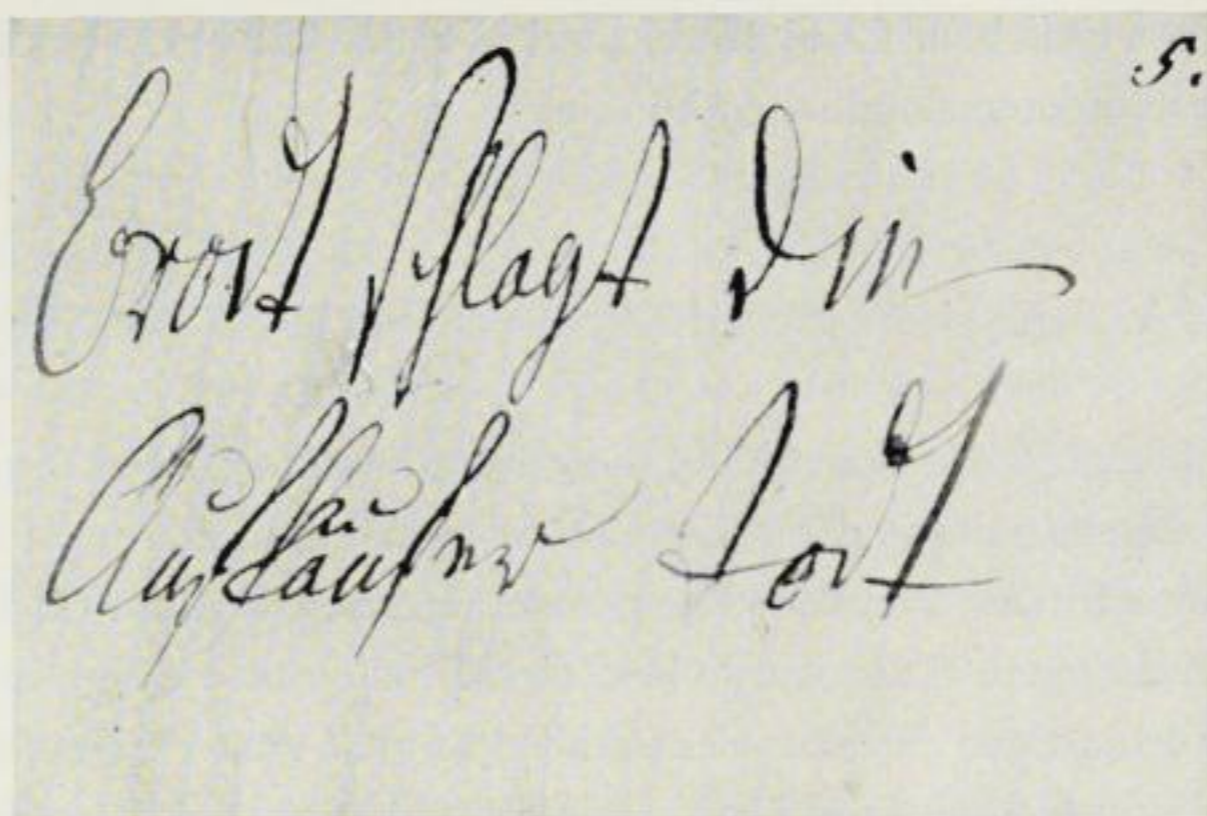 5.
Brodt schlagt die
Aufkäufer todt